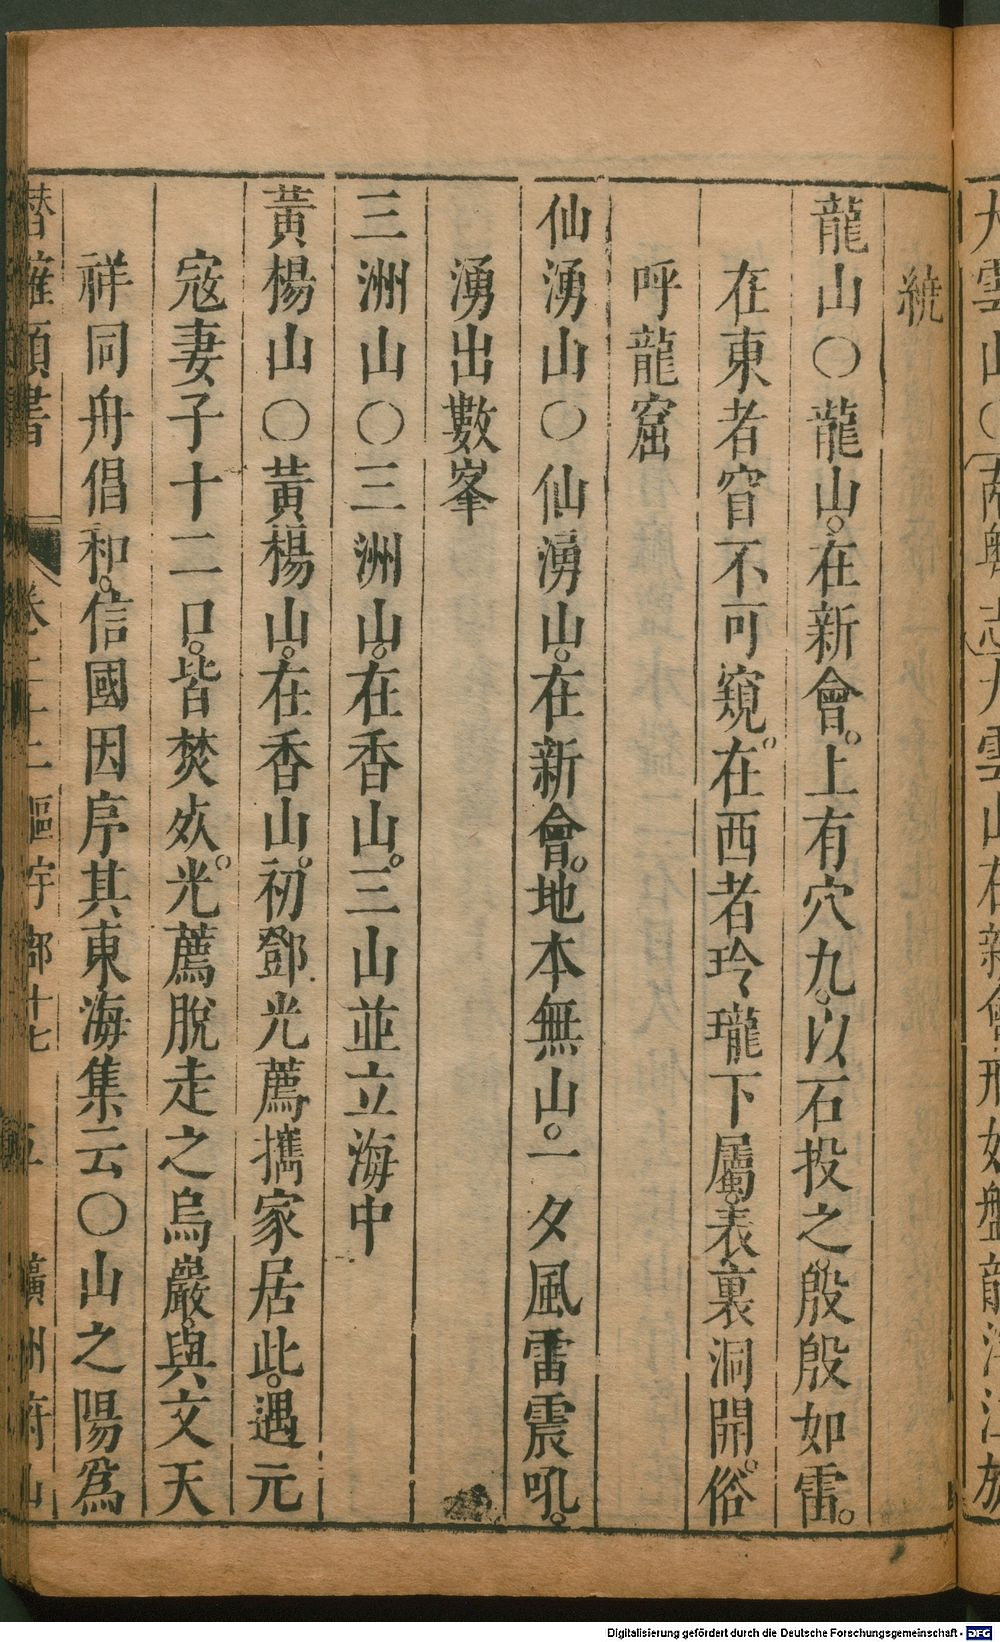 九雲山○南粵志九雲山在新會形如盤龍
繞
龍山○龍山在新會上有穴九以石投之殷殷如雷
在東者窅不可窺在西者玲瓏下屬表裏洞開俗
呼龍窟
仙湧山○仙湧山在新會地本無山一夕風雷震吼
湧出數峯
三洲山○三洲山在香山三山並立海中
黃楊山○黃楊山在香山初鄧光薦攜家居此遇元
寇妻子十二口皆焚死光薦脫走之烏巖與文天
祥同舟倡和信國因序其東海集云○山之陽爲
潛確類書 卷二十二區宇部十七 五 廣州府山
Digitalisierung gefördert durch die Deutsche Forschungsgemeinschaft - DFG